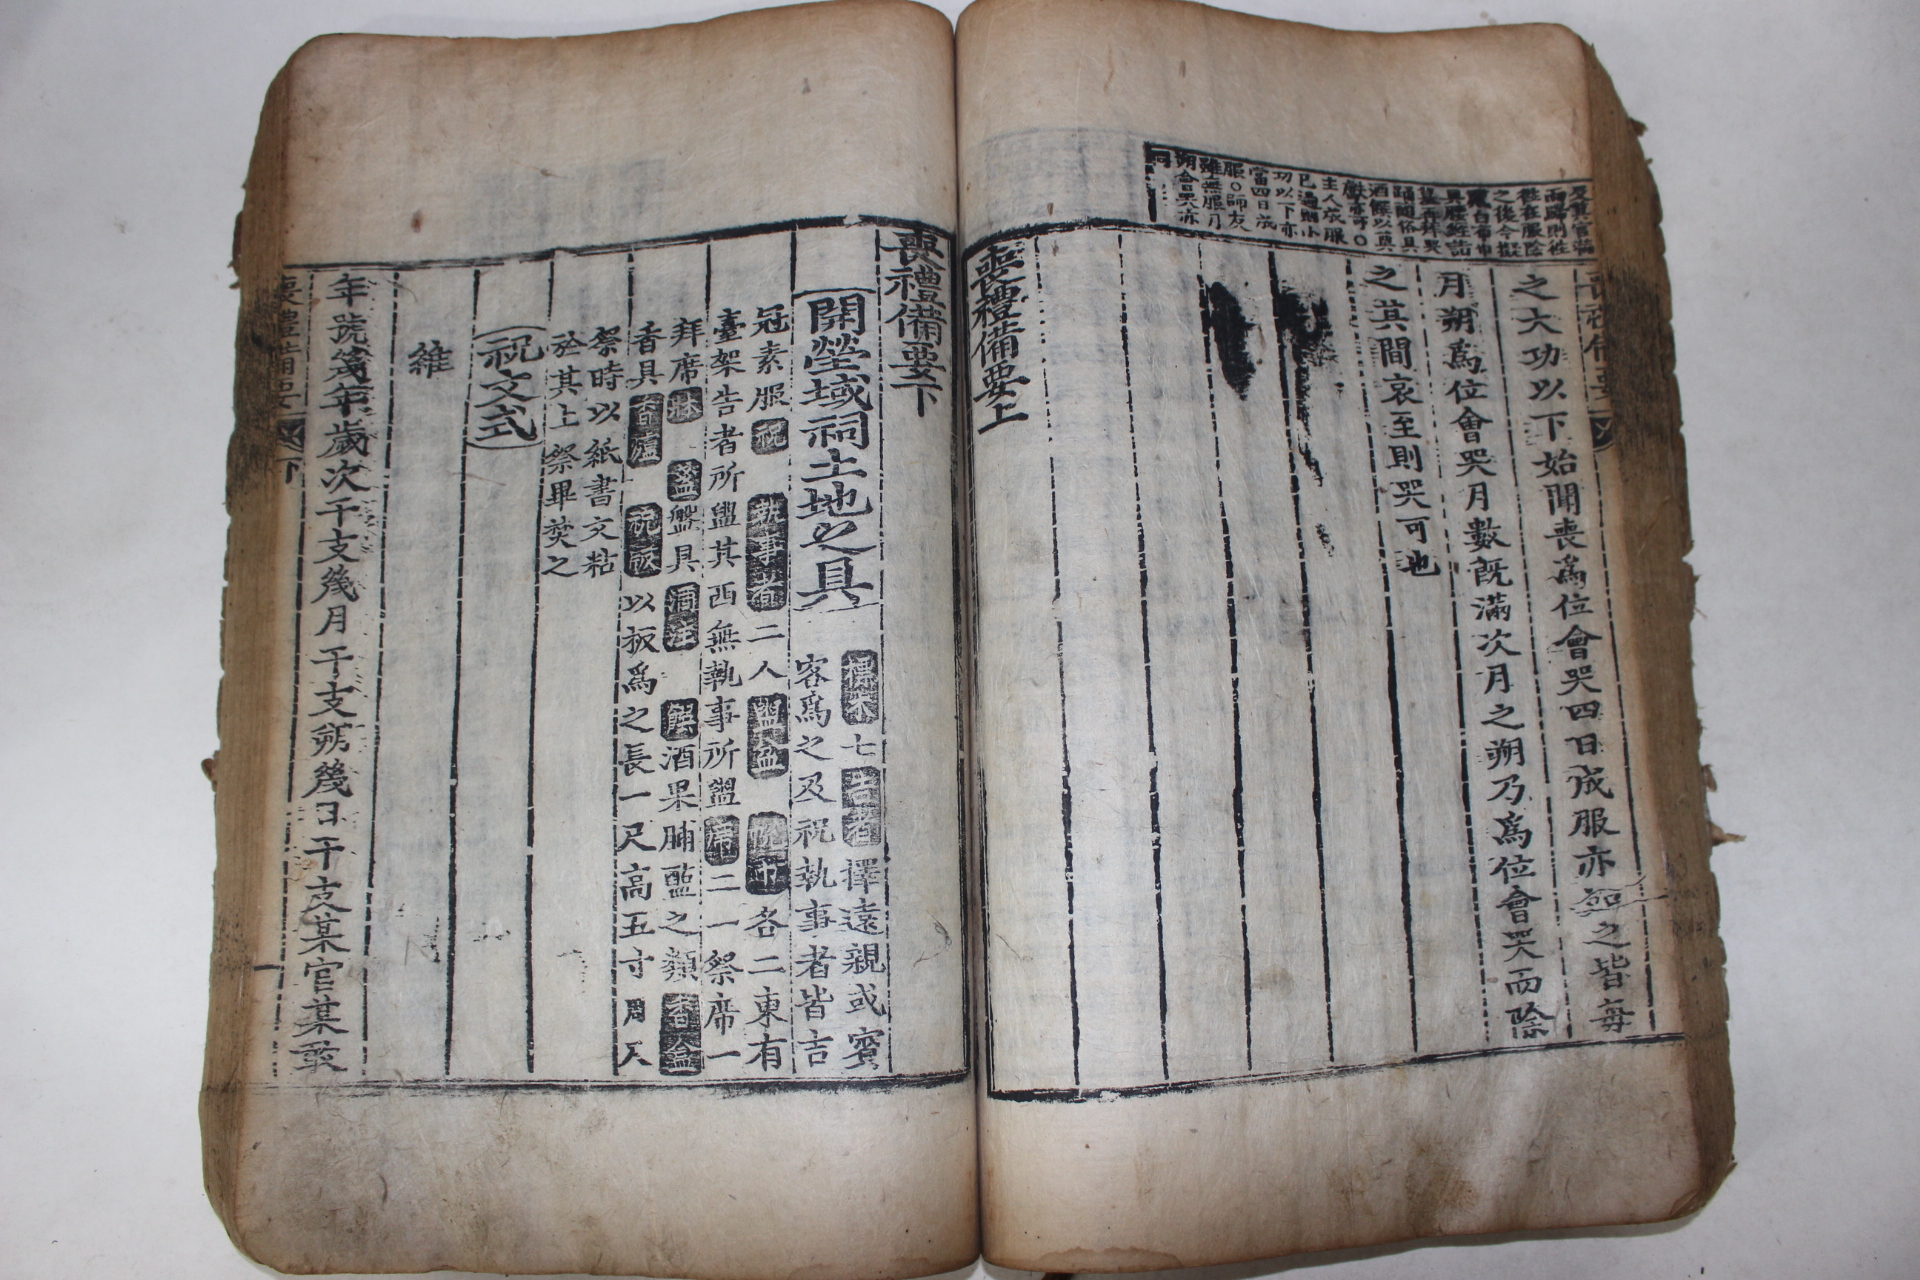 之大功以下始聞喪爲位會哭四日成服亦如之皆每
月朔爲位會哭月數旣滿次月之朔乃爲位會哭而除
之其間哀至則哭可也
主人成服
已過期小
功以下亦
當四日成
服○師友
雖無服月
朔會哭亦
同
喪禮備要上
喪禮備要下
開塋域祠土地之具
標木七告者擇遠親或賓
客爲之及祝執事者皆吉
冠素服祝執事者二人盥盆帨巾各二東有
臺架告者所盥其西無執事所盥席二一祭席一
拜席牀盞盤具酒注饌酒果脯醢之類香盒
香具香爐祝版以板爲之長一尺高五寸周尺
祭時以紙書文粘
於其上祭畢焚之
祝文式
維
年號幾年歲次干支幾月干支朔幾日干支某官某敢
喪禮備要 下